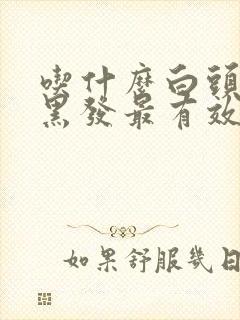 喫什麼白頭
黑發最有效
如果舒服幾日